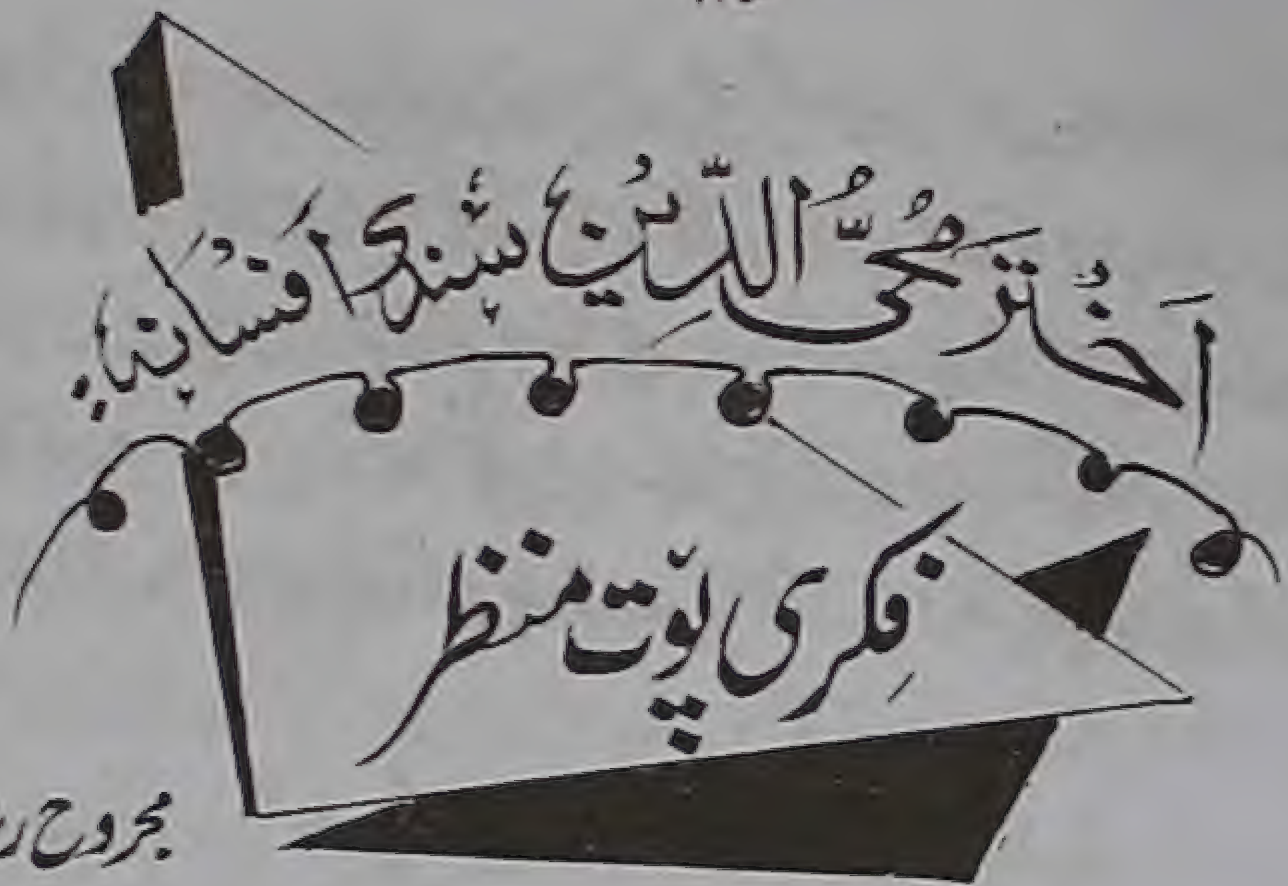 اَختَر مُحیُّ الدّیٖن سٕندۍ افسانہٕ
فِکری پوٚت منظر
مجروح